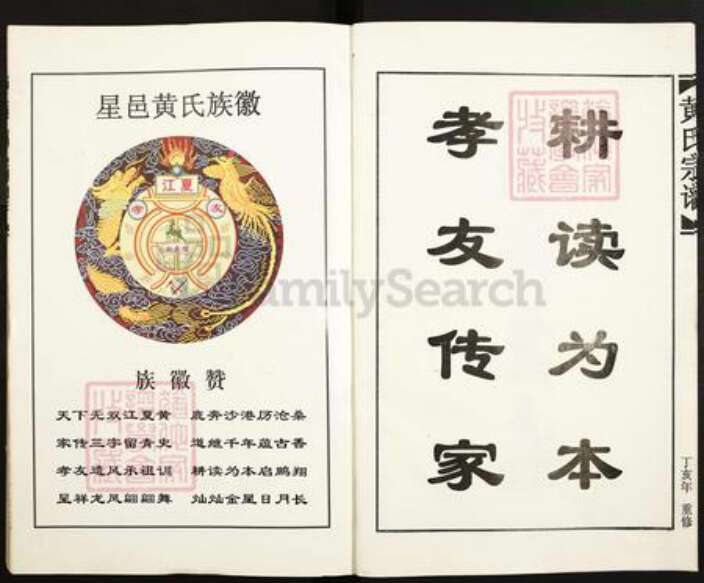 黄氏宗谱
丁亥年 重修
耕读为本
孝友传家
星邑黄氏族徽
江夏
孝 友
族徽赞
天下无双江夏黄 鹿奔沙港历沧桑
家传三字留青史 道继千年蕴古香
孝友遗风承祖训 耕读为本启鹏翔
呈祥龙凤翩翩舞 灿灿金星日月长
FamilySearch